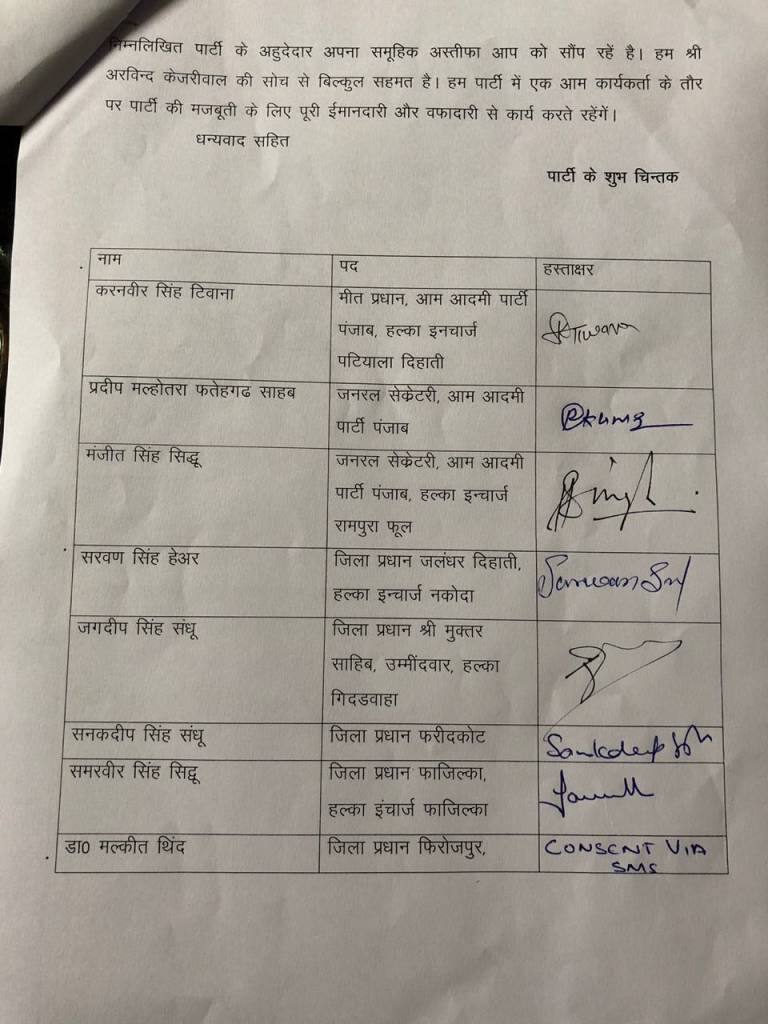 निम्नलिखित पार्टी के अहुदेदार अपना समूहिक अस्तीफा आप को सौंप रहें है। हम श्री
अरविन्द केजरीवाल की सोच से बिल्कुल सहमत है। हम पार्टी में एक आम कार्यकर्ता के तौर
पर पार्टी की मजबूती के लिए पूरी ईमानदारी और वफादारी से कार्य करते रहेंगें।
धन्यवाद सहित
पार्टी के शुभ चिन्तक
नाम पद हस्ताक्षर
करनवीर सिंह टिवाना मीत प्रधान, आम आदमी पार्टी
पंजाब, हल्का इनचार्ज
पटियाला दिहाती
प्रदीप मल्होतरा फतेहगढ साहब जनरल सेक्रेटरी, आम आदमी
पार्टी पंजाब
मंजीत सिंह सिद्धू जनरल सेक्रेटरी, आम आदमी
पार्टी पंजाब, हल्का इन्चार्ज
रामपुरा फूल
सरवण सिंह हेअर जिला प्रधान जलंधर दिहाती,
हल्का इन्चार्ज नकोदा
जगदीप सिंह संधू जिला प्रधान श्री मुक्तर
साहिब, उम्मींदवार, हल्का
गिदडवाहा
सनकदीप सिंह संधू जिला प्रधान फरीदकोट
समरवीर सिंह सिद्वू जिला प्रधान फाजिल्का,
हल्का इंचार्ज फाजिल्का
डा0 मल्कीत थिंद जिला प्रधान फिरोजपुर, CONSENT VIA
SMS